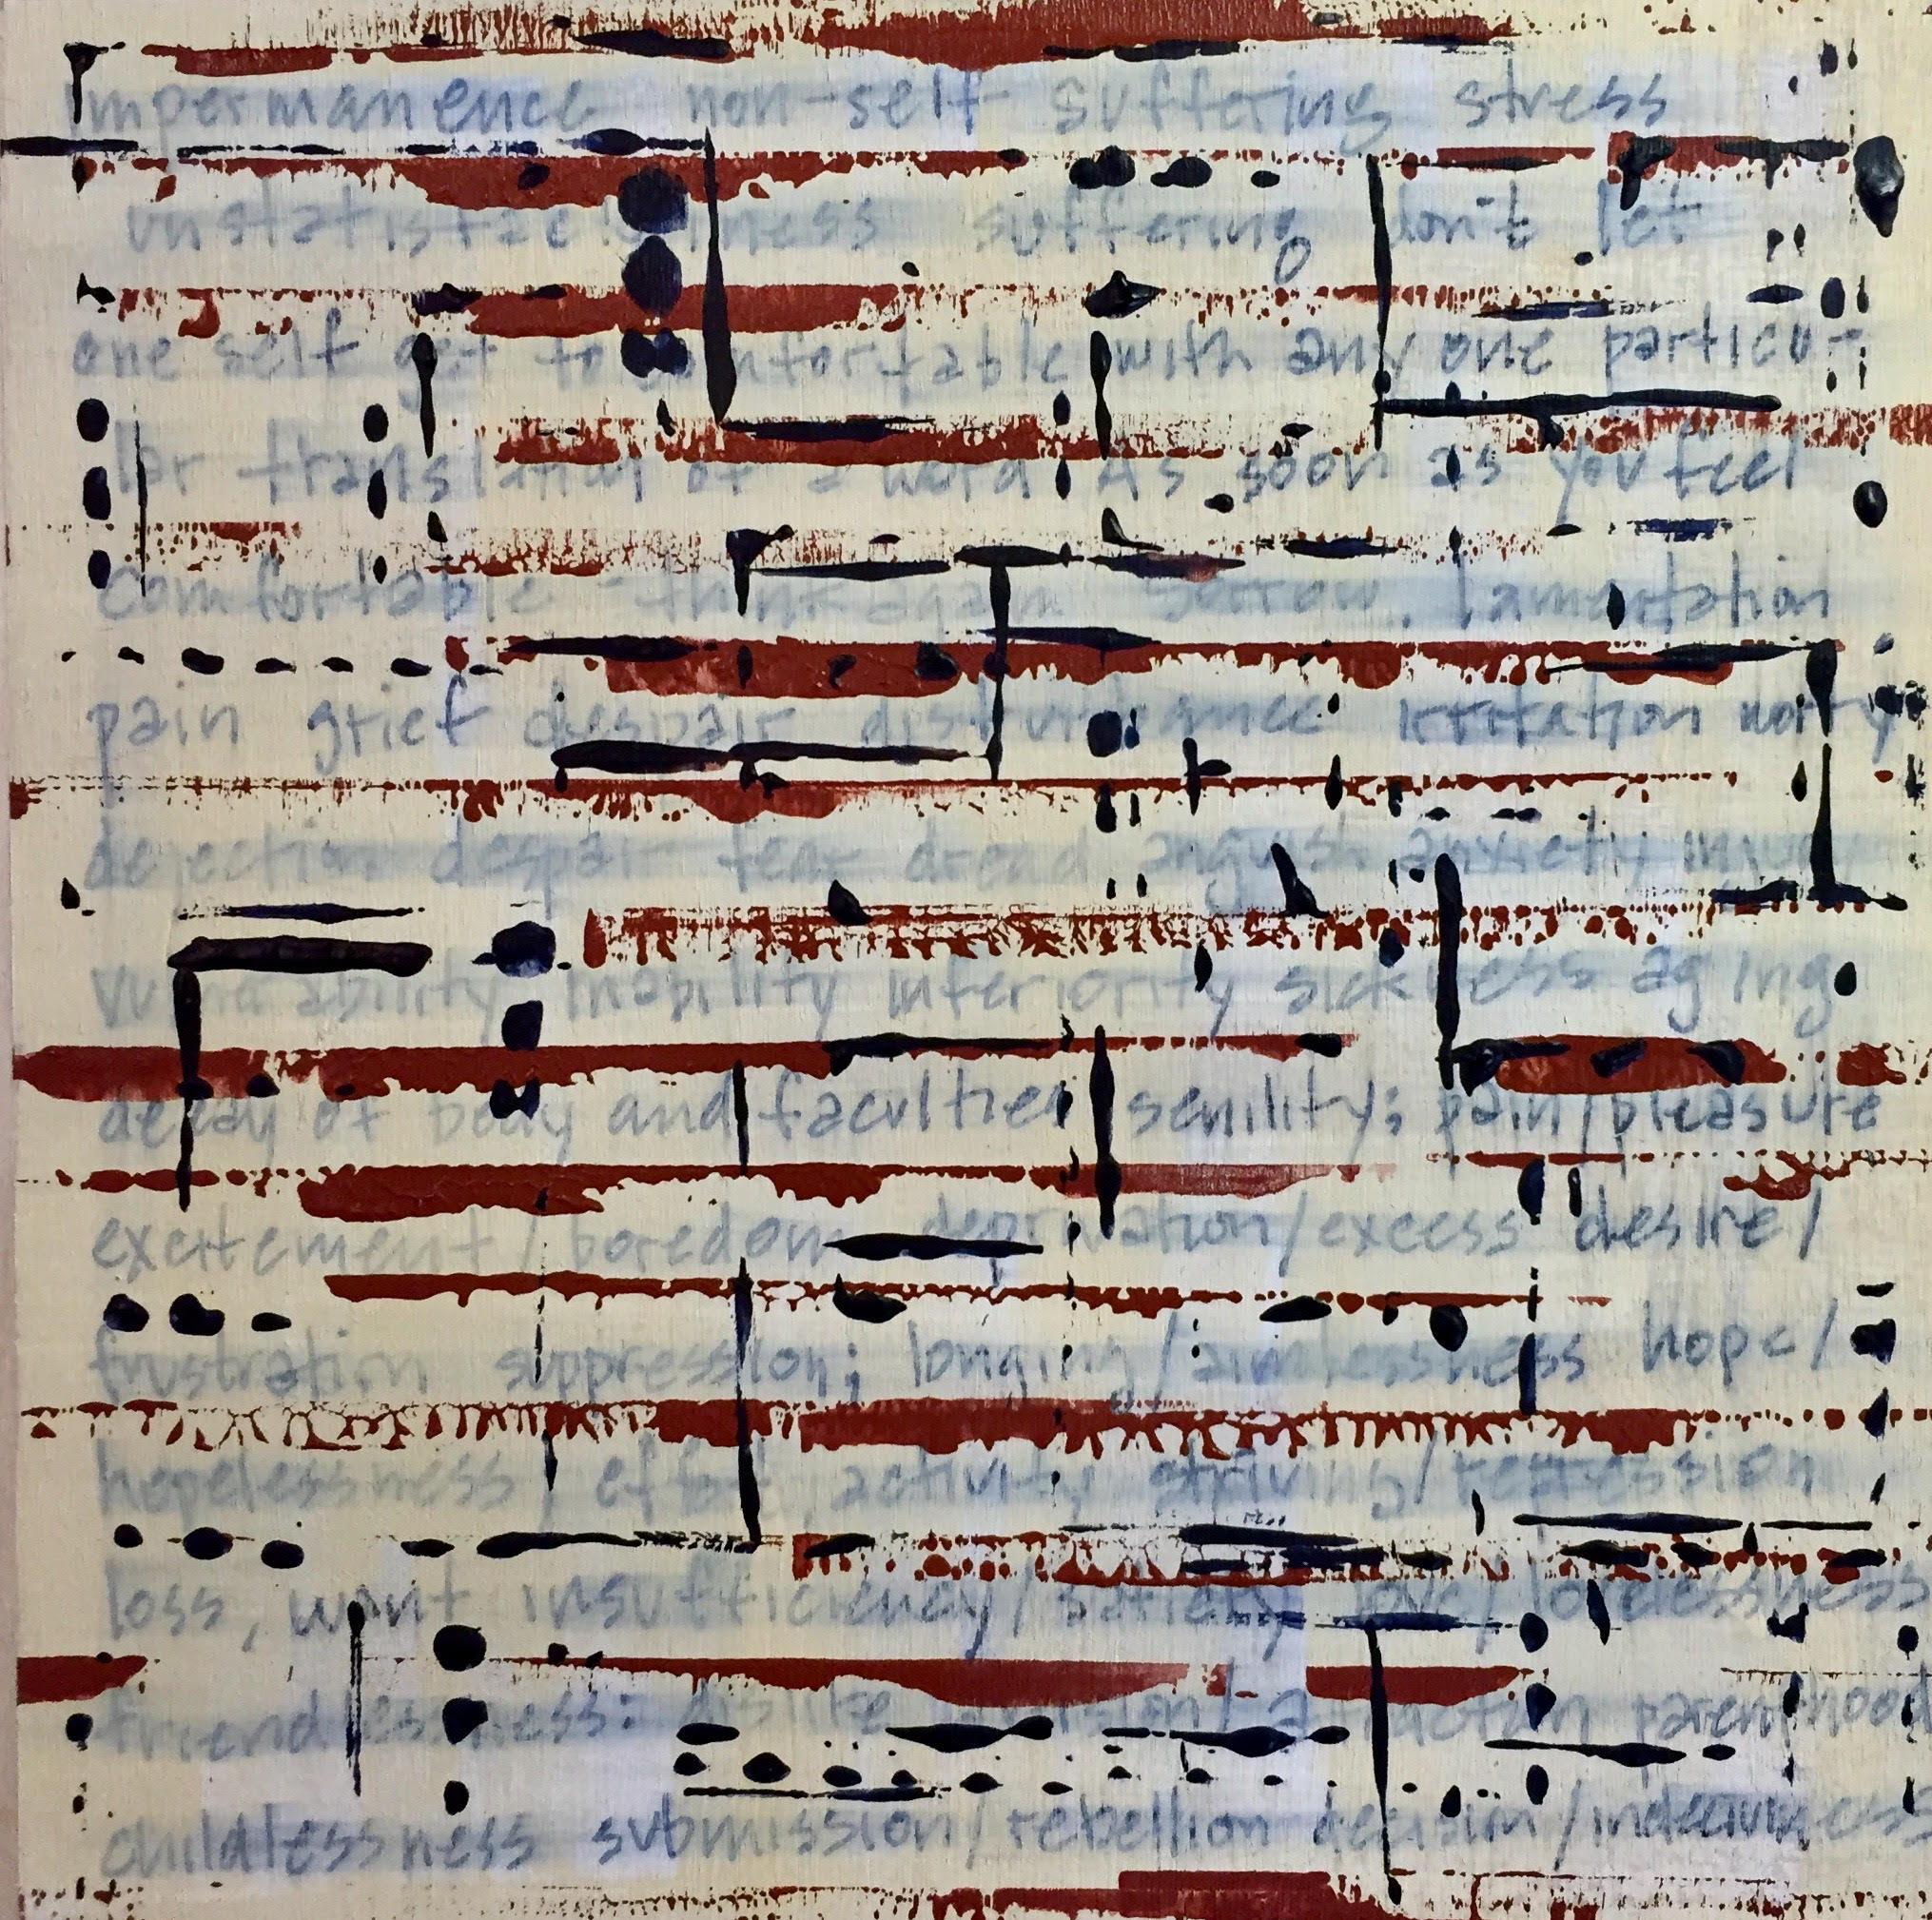 Impermanence non-self suffering stress
unstatisfactoriness suffering don't let
one self get to comfortable with any one particu-
lar translation of a word As soon as you feel
comfortable - think again sorrow, lamantation
pain grief despair disturbance irritation worry
dejection despair fear dread anguish anxiety
vulnerability inability inferiority sickness aging
decay of body and faculties senility; pain/pleasure
excitement/boredom deprivation/excess desire/
frustration suppression; longing/aimlessness hope/
hopelessness; effort, activity striving/repression
loss, want insufficiency/satiety love/lovelessness
friendlessness: dislike aversion/attraction parenthood
childlessness submission/rebellion decision/indecisiveness